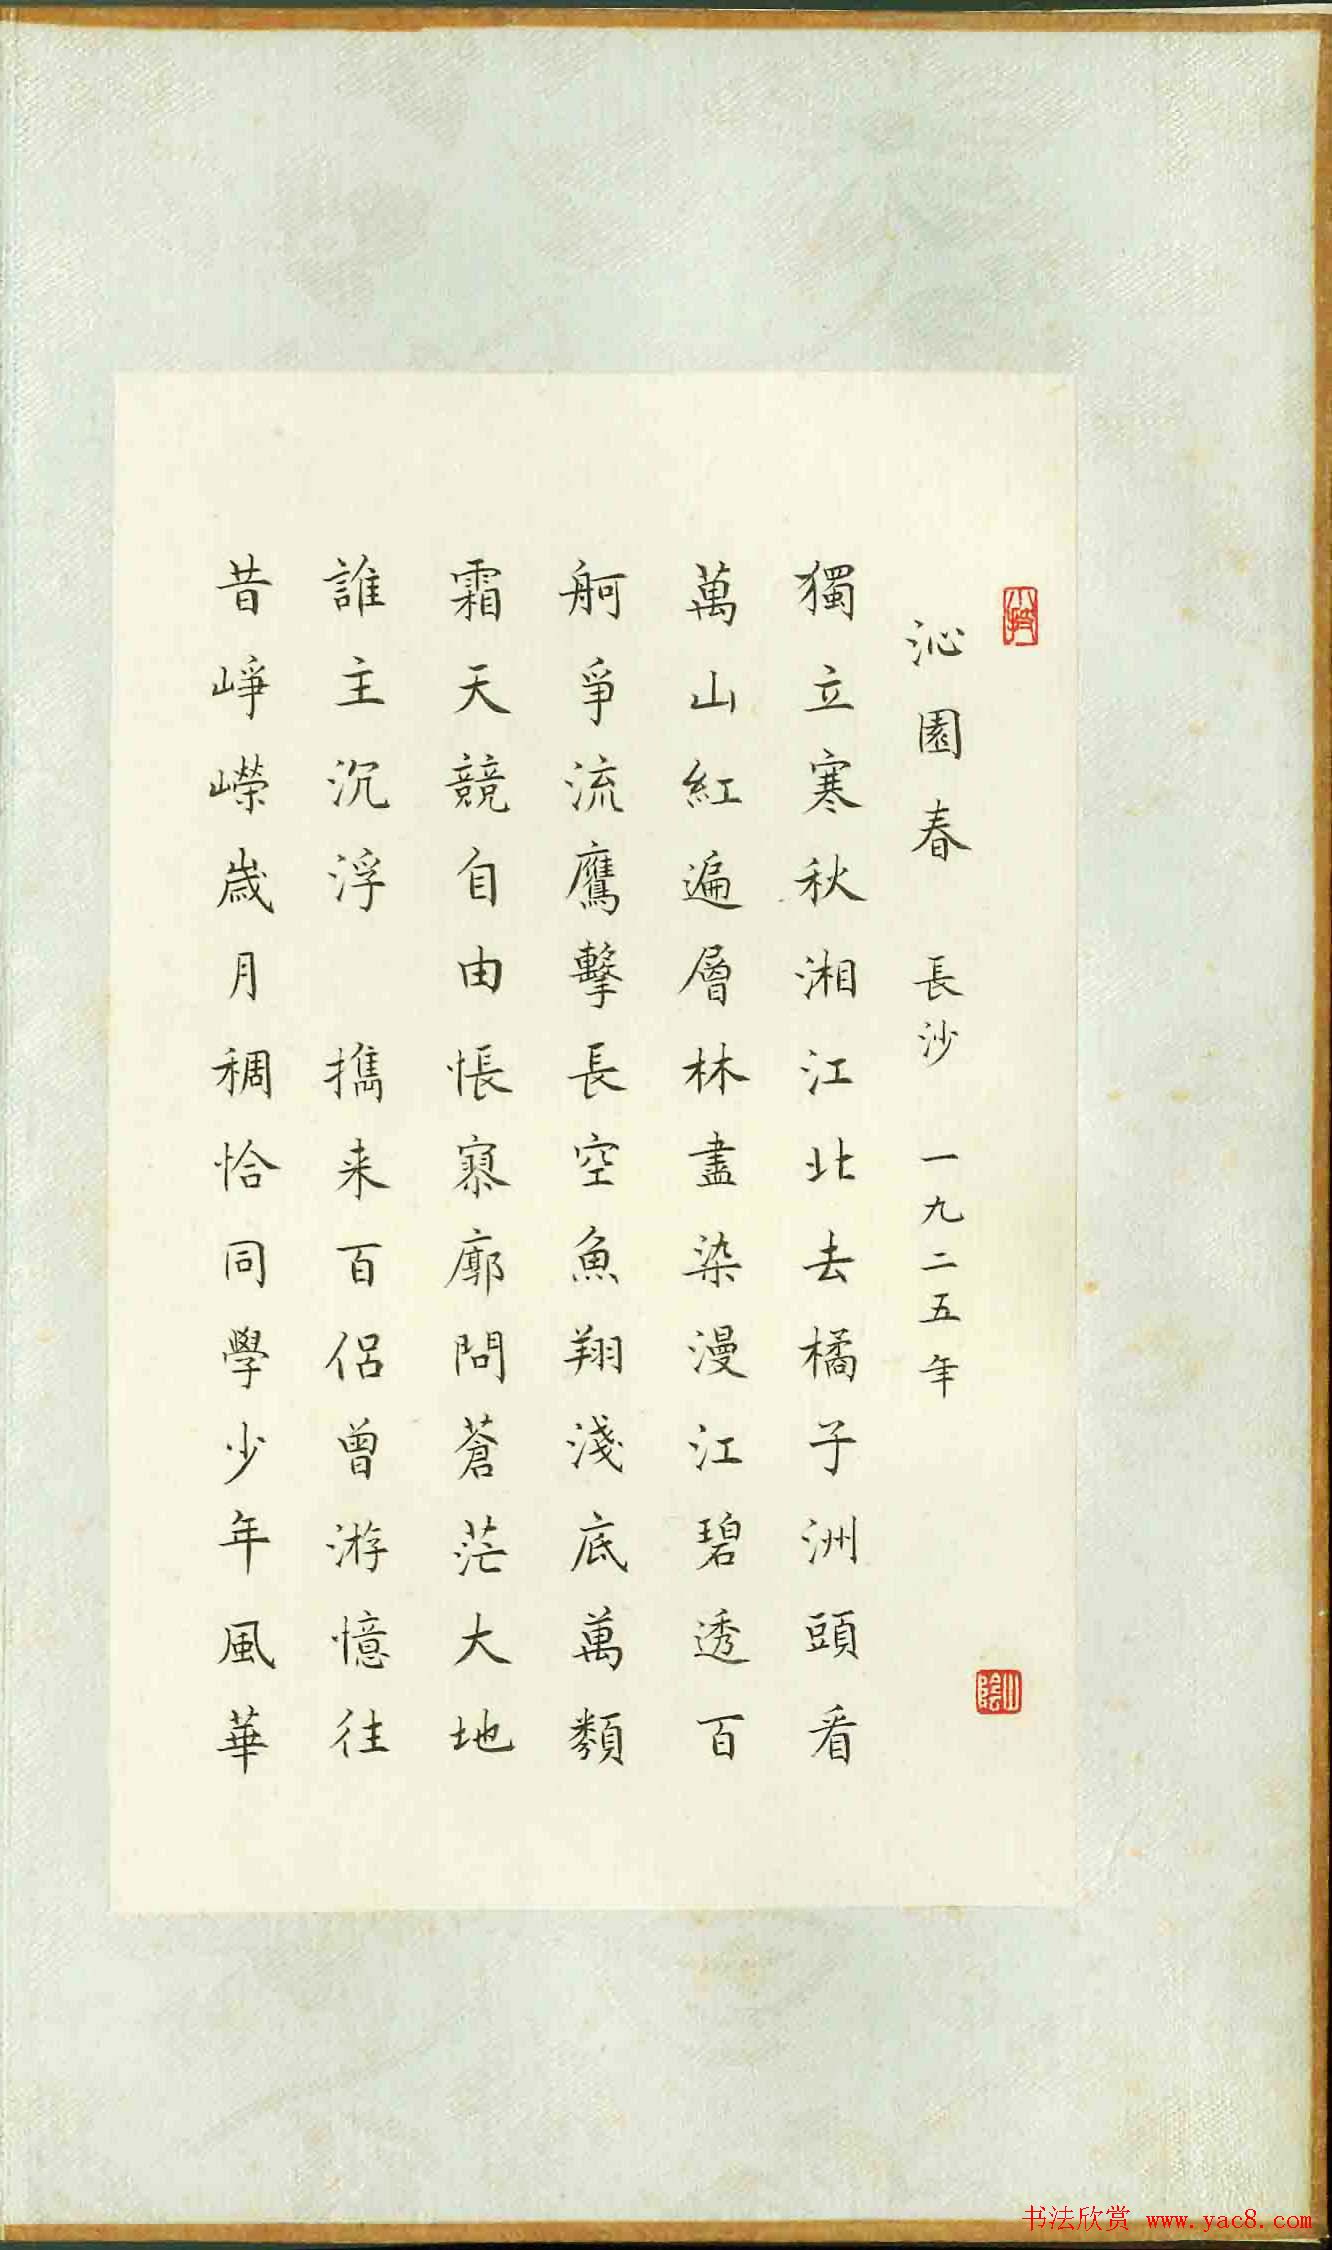 沁園春 長沙 一九二五年
獨立寒秋湘江北去橘子洲頭看
萬山紅遍層林盡染漫江碧透百
舸爭流鷹擊長空魚翔淺底萬類
霜天競自由悵寥廓問蒼茫大地
誰主沉浮 擕来百侶曾游憶往
昔崢嶸歲月稠恰同學少年風華
山陰
书法欣赏 www.yac8.com